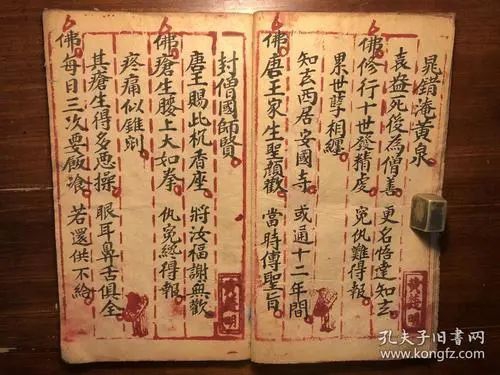 晁錯淹黄泉
袁盎死後為僧善 更名悟達知玄
佛修行十世發精虔 冤仇難得報
累世孽相纏
知玄西居安國寺 或通十二年間
佛唐王家生聖顏歡 當時傳聖旨
封僧國師賢
唐王賜此杌香座 將汝福謝與歡
佛瘡生腰上大如拳 仇冤總得報
疼痛似錐剜
其瘡生得多悪操 眼耳鼻舌俱全
佛每日三次要飯飡 若還供不給
孔夫子旧书网
www.kongfz.com